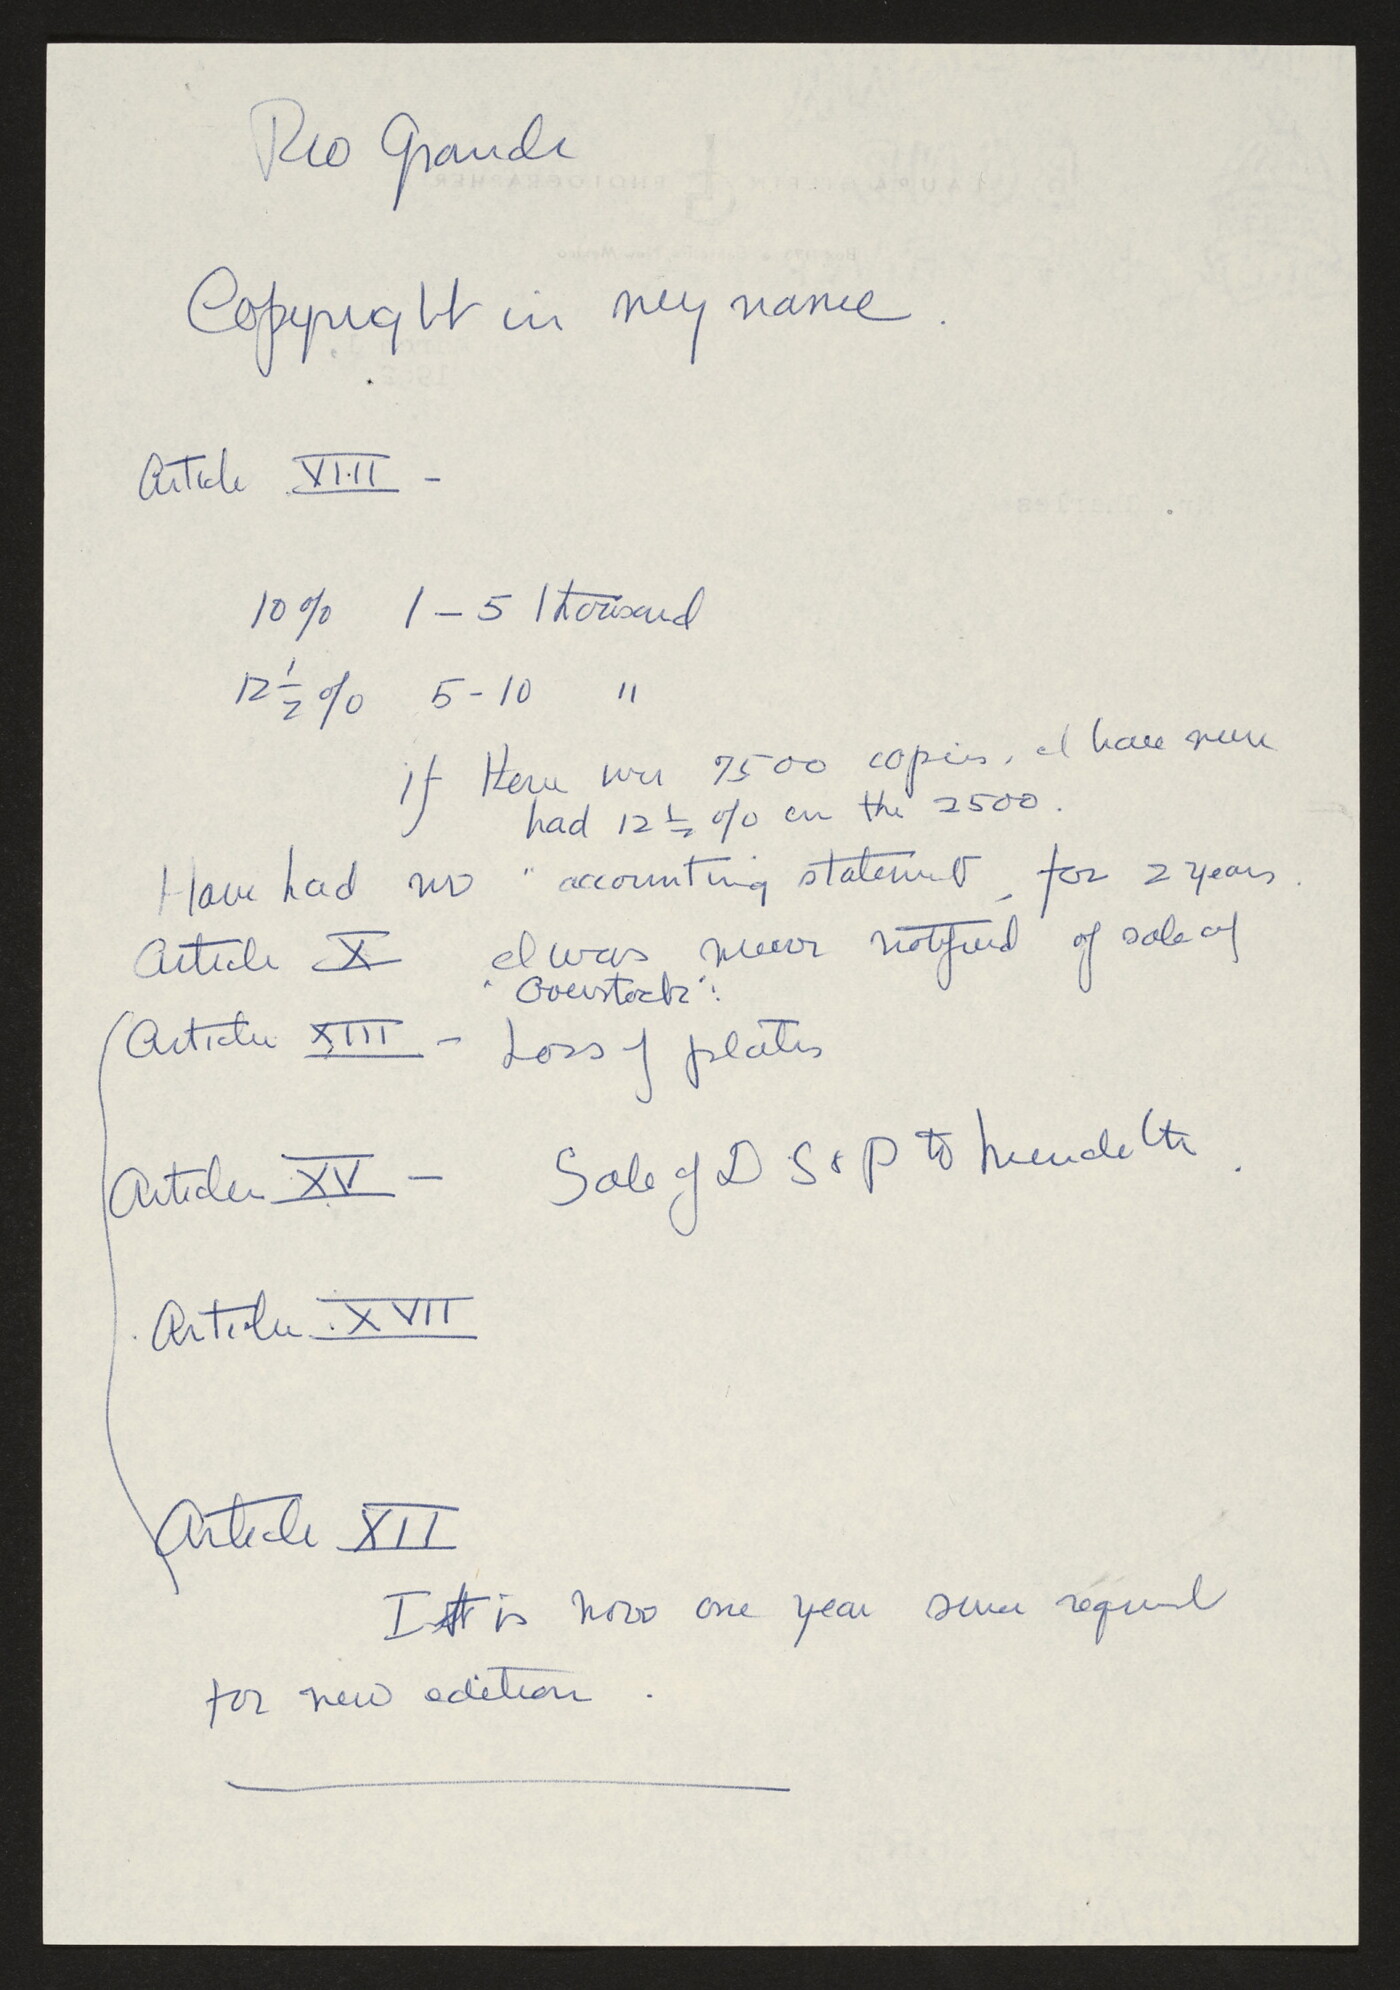 Rio Grande
Copyright in my name.
Article VIII -
10% 1 - 5 Thousand
12 1/2 % 5 - 10 "
if there were 7500 copies, I have never
had 12 1/2 % on the 2500.
Have had no "accounting statement for 2 years.
Article X I was never notified of sale of
"Overstock".
Article XIII - Loss of plates
Article XV - Sale of D S & P to
Article XVII
Article XII
It is now one year since request
for new edition.
LAURA GILPIN / PHOTOGRAPHER